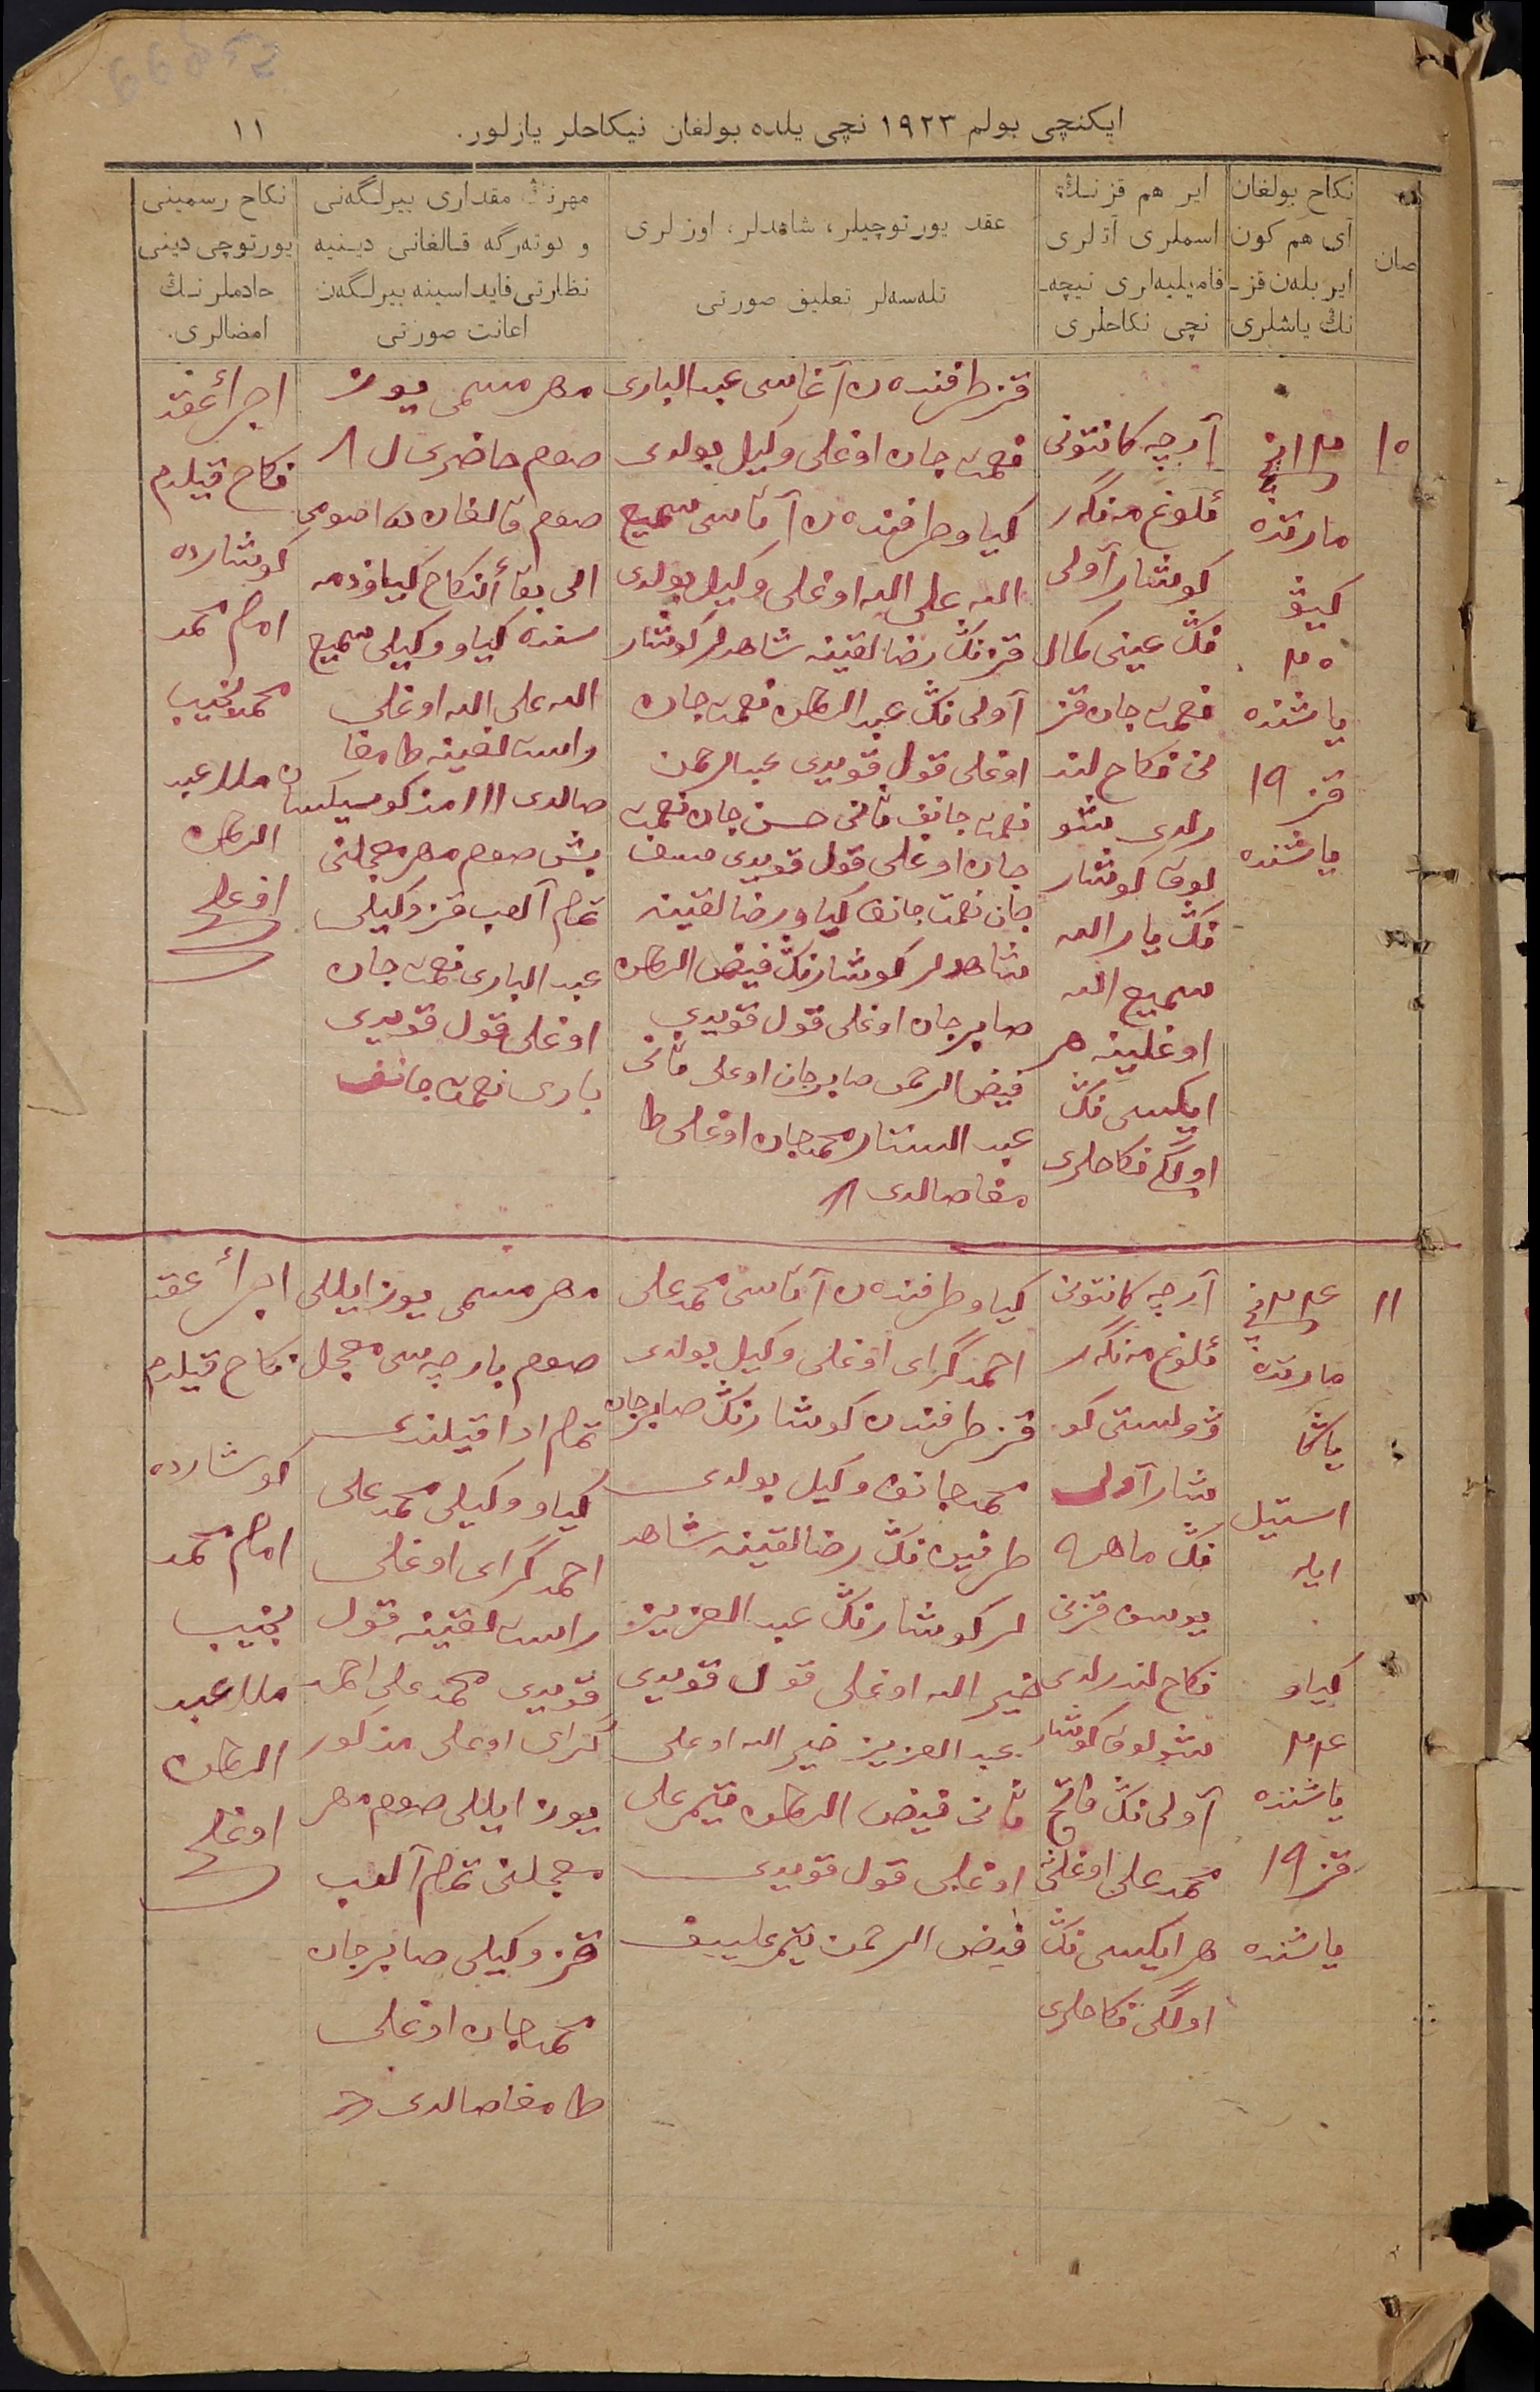 ايكنچی بولم ١٩٢٣ نچی يلده بولغان نيكاحلر يازلور.
١١
صان
نكاح بولغان
آی هم كون
ایر بلەن قز-
نڭ ياشلری
ایر هم قزنڭ
اسملری آتلری
فاميليەلری نيچە-
نچی نكاحلری
عقد يورتوچيلر، شاهدلر، اوزلری
تلەسەلر تعليق صورتی
مهرنڭ مقداری بيرلگەنی
و توتەرگە قالغانی دينيە
نظارتی فايداسينە بيرلگەن
اعانت صورتی
نكاح رسمينی
يورتوچی دينی
خادملرنڭ
امضالری.
١٠
مارتده
كيڤ
٢٠
ياشنده
قز ١٩
ياشنده
آرچه كانتونی
ئلوغ منگر
كوشار آولی
نڭ عينی كمال
نعمت جان قز
نی نكاح لند
رلدی شو
لوق كوشار
نڭ يار الله
سميع الله
اوغلينه هر
ايكيسی نڭ
اولگی نكاحلری
قز طرفنده ن آغاسی عبد الباری
نعمت جان اوغلی وكيل بولدی
كياو طرفنده ن آتاسی سميع
الله علی الله اوغلی وكيل بولدی
قزنڭ رضالقينه شاهدلر كوشار
آولی نڭ عبد الرحمن نعمت جان
اوغلی قول قويدی عبد الرحمن
نعمت جانف ثانی حسن جان نعمت
جان اوغلی قول قويدی حسن
جان نعمت جانف كياو رضالقينه
شاهدلر كوشارنڭ فيض الرحمن
صابرجان اوغلی قول قويدی
فيض الرحمن صابرجان اوغلی ثانی
عبد الستار محمدجان اوغلی طا
مغا صالدی
مهر مسمی يوز
صوم حاضری
صوم قالغان
الی بقأ النكاح كياو ذمه
سنده كياو وكيلی سميع
الله علی الله اوغلی
راست لغينه طامغا
صالدی ااا مذكور سيكسان
بش صوم مهر معجلنی
تمام آلوب قز وكيلی
عبد الباری نعمت جان
اوغلی قول قويدی
باری نعمت جانف
اجرأ عقد
نكاح قيلدم
كوشارده
امام محمد
محمدنجيب
ملا عبد
الرحمن
اوغلی
١١
مارتده
ياڭا
استيل
ايله
كياو
٢٤
ياشنده
قز ١٩
ياشنده
آرچه كانتونی
ئلوغ منگر
ڤولستی كو
شار آولی
نڭ ماهره
يوسف قزنی
نكاح لندرلدی
شولوق كوشار
آولی نڭ فاتح
محمدعلی اوغلينه
هر ايكيسی نڭ
اولگی نكاحلری
كياو طرفنده ن آتاسی محمدعلی
احمدگرای اوغلی وكيل بولدی
قز طرفندن كوشارنڭ صابرجان
محمدجانف وكيل بولدی
طرفين نڭ رضالقينه شاهد
لر كوشارنڭ عبد العزيز
خير الله اوغلی قول قويدی
عبد العزيز خير الله اوغلی
ثانی فيض الرحمن تيمرعلی
اوغلی قول قويدی
فيض الرحمن تيمرعلييف
مهر مسمی يوز ايللی
صوم بارچه سی معجل
تمام ادا قيلندی
كياو وكيلی محمدعلی
احمدگرای اوغلی
راست لقينه قول
قويدی محمدعلی احمد
گرای اوغلی مذكور
يوز ايللی صوم مهر
معجلنی تمام آلوب
قز وكيلی صابرجان
محمدجان اوغلی
طامغا صالدی
اجرأ عقد
نكاح قيلدم
كوشارده
امام محمد
نجيب
ملا عبد
الرحمن
اوغلی